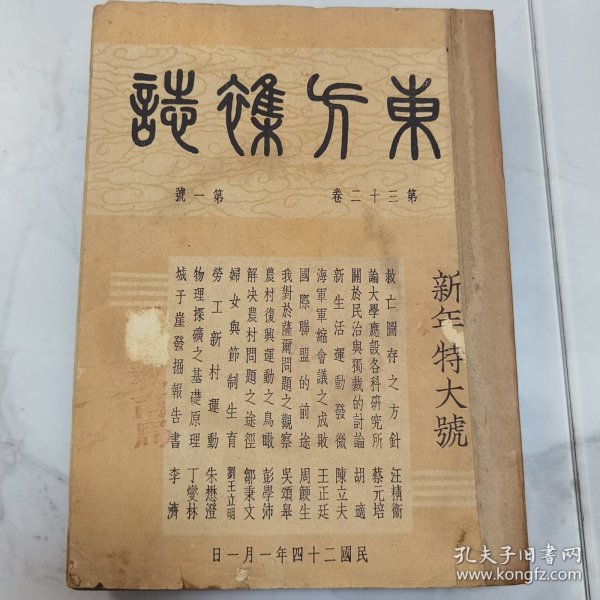 東方雜誌
第三十二卷 第一號
新年特大號
救亡圖存之方針 汪精衛
論大學應設各科研究所 蔡元培
關於民治與獨裁的討論 胡適
新生活運動發微 陳立夫
海軍軍縮會議之成敗 王正廷
國際聯盟的前途 周鯁生
我對於薩爾問題之觀察 吳頌皋
農村復興運動之鳥瞰 彭學沛
解決農村問題之途徑 鄒秉文
婦女與節制生育 劉王立明
勞工新村運動 朱懋澄
物理探礦之基礎原理 丁燮林
城子崖發掘報告書 李濟
民國二十四年一月一日
孔夫子旧书网
www.kongfz.com